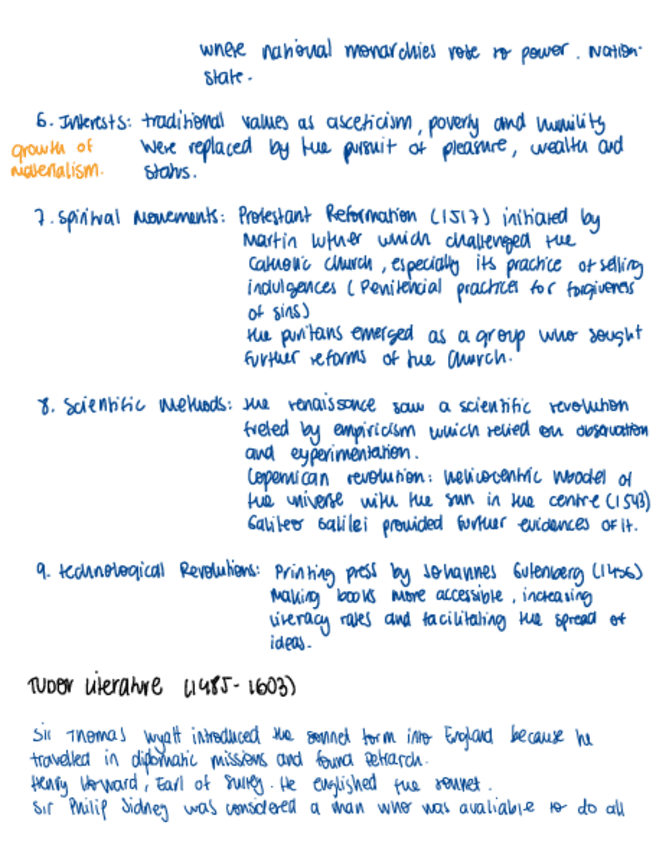 where national monarchies rose to power. Nation-
state.
6. Interests: traditional values as asceticism, poverty and humility
growth of were replaced by the pursuit of pleasure, wealth and
materialism. status.
7. Spiritual Movements: Protestant Reformation (1517) initiated by
Martin Luther which challenged the
Catholic church, especially its practice of selling
indulgences (Penitencial practices for forgiveness
of sins)
the puritans emerged as a group who sought
further reforms of the Church.
8. Scientific Methods: the renaissance saw a scientific revolution
fueled by empiricism which relied on observation
and experimentation.
Copernican revolution: heliocentric model of
the universe with the sun in the centre (1543)
Galileo Galilei provided further evidences of it.
9. technological Revolutions: Printing press by Johannes Gutenberg (1456)
Making books more accessible, increasing
literacy rates and facilitating the spread of
ideas.
TUDOR Literature (1485-1603)
Sir Thomas Wyatt introduced the sonnet form into England because he
travelled in diplomatic missions and found Petrarch.
Henry Howard, Earl of Surrey. He englished the sonnet.
Sir Philip Sidney was considered a man who was avaliable to do all